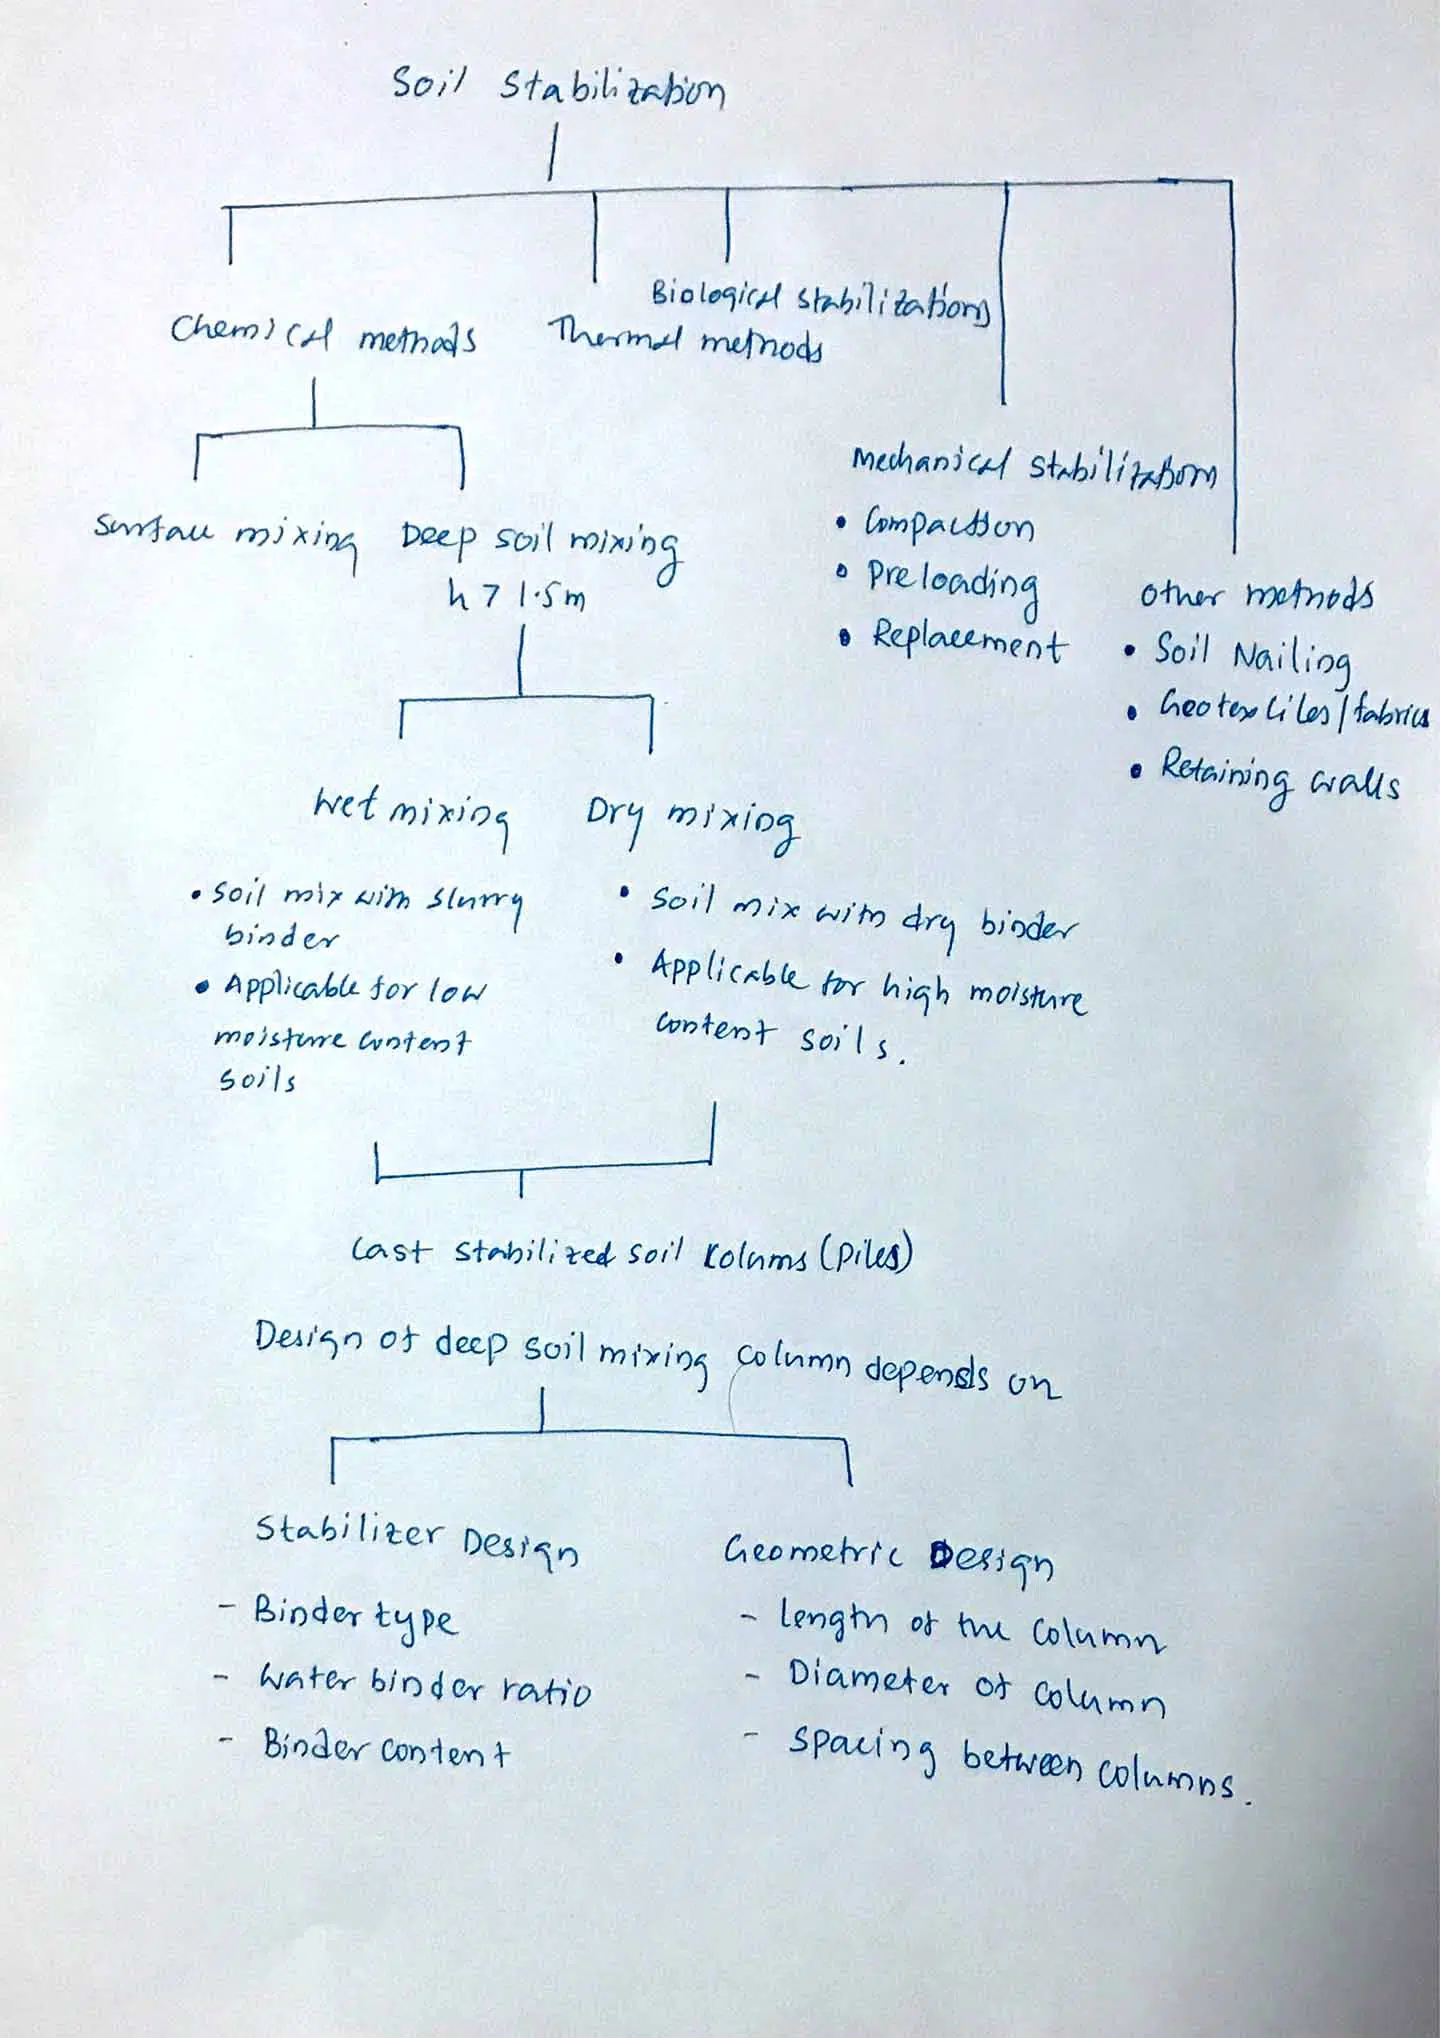 Soil Stabilization
Chemical methods
Thermal methods
Biological stabilizations
Surface mixing
Deep soil mixing
h > 1.5m
Mechanical stabilization
• Compaction
• Preloading
• Replacement
Other methods
• Soil Nailing
• Geotextiles/fabrics
• Retaining walls
Wet mixing
• Soil mix with slurry
binder
• Applicable for low
moisture content
soils
Dry mixing
• Soil mix with dry binder
• Applicable for high moisture
content soils.
Cast stabilized soil Kolums (Piles)
Design of deep soil mixing column depends on
Stabilizer Design
- Binder type
- Water binder ratio
- Binder content
Geometric Design
- Length of the column
- Diameter of column
- Spacing between columns.